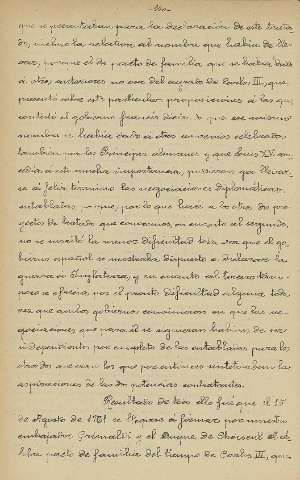 que se presentaban para la declaracion de este trata-
do, incluso la relativa al nombre que habia de lle-
var, porque el de pacto de familia que se habia dado
á otros anteriores no era del agrado de Carlos III, que
presentó sobre este particular proposiciones á las que
contestó el gobierno francés diciendo que ese mismo
nombre se habia dado a otros convenios celebrados
tambien por los Principes alemanes y que Luis XV con-
cedia a este nombre importancia, pusieron por
á feliz término las negociaciones diplomáticas
entabladas porque, por lo que hacer a los dos pro-
yectos de tratado que conocemos, en cuanto al segundo,
no se suscitó la menor dificultad toda vez que el go-
bierno español se mostraba dispuesto a declarar la
guerra a Inglaterra, y en cuanto al tercero tam-
poco se ofrecia por el pronto dificultad alguna toda
vez que ambos gobiernos convinieron en que las ne-
gociaciones que para él se siguieran habian de ser
independientes por completo de las entabladas para los
otros dos que eran los que por entonces satisfacian las
aspiraciones de las dos potencias contratantes.
Resultado de todo ello fué que el 15
de Agosto de 1761 se llegase á firmar por nuestro
embajador Grimaldi y el Duque de Choiseul el cé-
lebre pacto de familia del tiempo de Carlos III, que